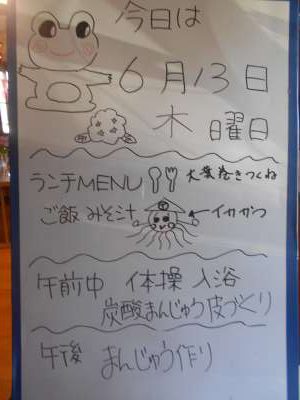 今日は
6月13日
木 曜日
ランチMENU 大葉巻きつくね
ご飯 みそ汁 ←イカがつ
午前中 体操 入浴
炭酸まんじゅう皮づくり
午後 まんじゅう作り